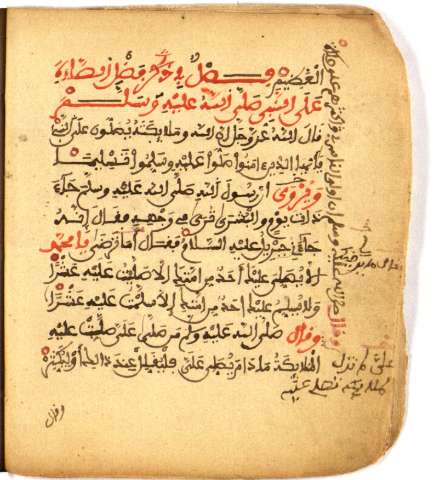 العظيم فصل في فضل الصلاة
على النبي صلى الله عليه وسلم
قال الله عز وجل ان الله وملائكته يصلون على النبي
يأيها الذين ءامنوا صلوا عليه وسلموا تسليما
ويروى ان رسول الله صلى الله عليه وسلم جاء
ذات يوم والبشرى ترى في وجهه فقال انه
جاءني جبريل عليه السلام فقال اما ترضى يا محمد
ان لا يصلي عليك احد من امتك الا صليت عليه عشرا
ولا يسلم عليك احد من امتك الا سلمت عليه عشرا
وقال صلى الله عليه وسلم من صلى علي صلت عليه
الملائكة مادام يصلي علي فليقلل عند ذالك او ليكثر
وقال صلى الله عليه وسلم ان اولى الناس بي اكثرهم علي صلاة
وقال